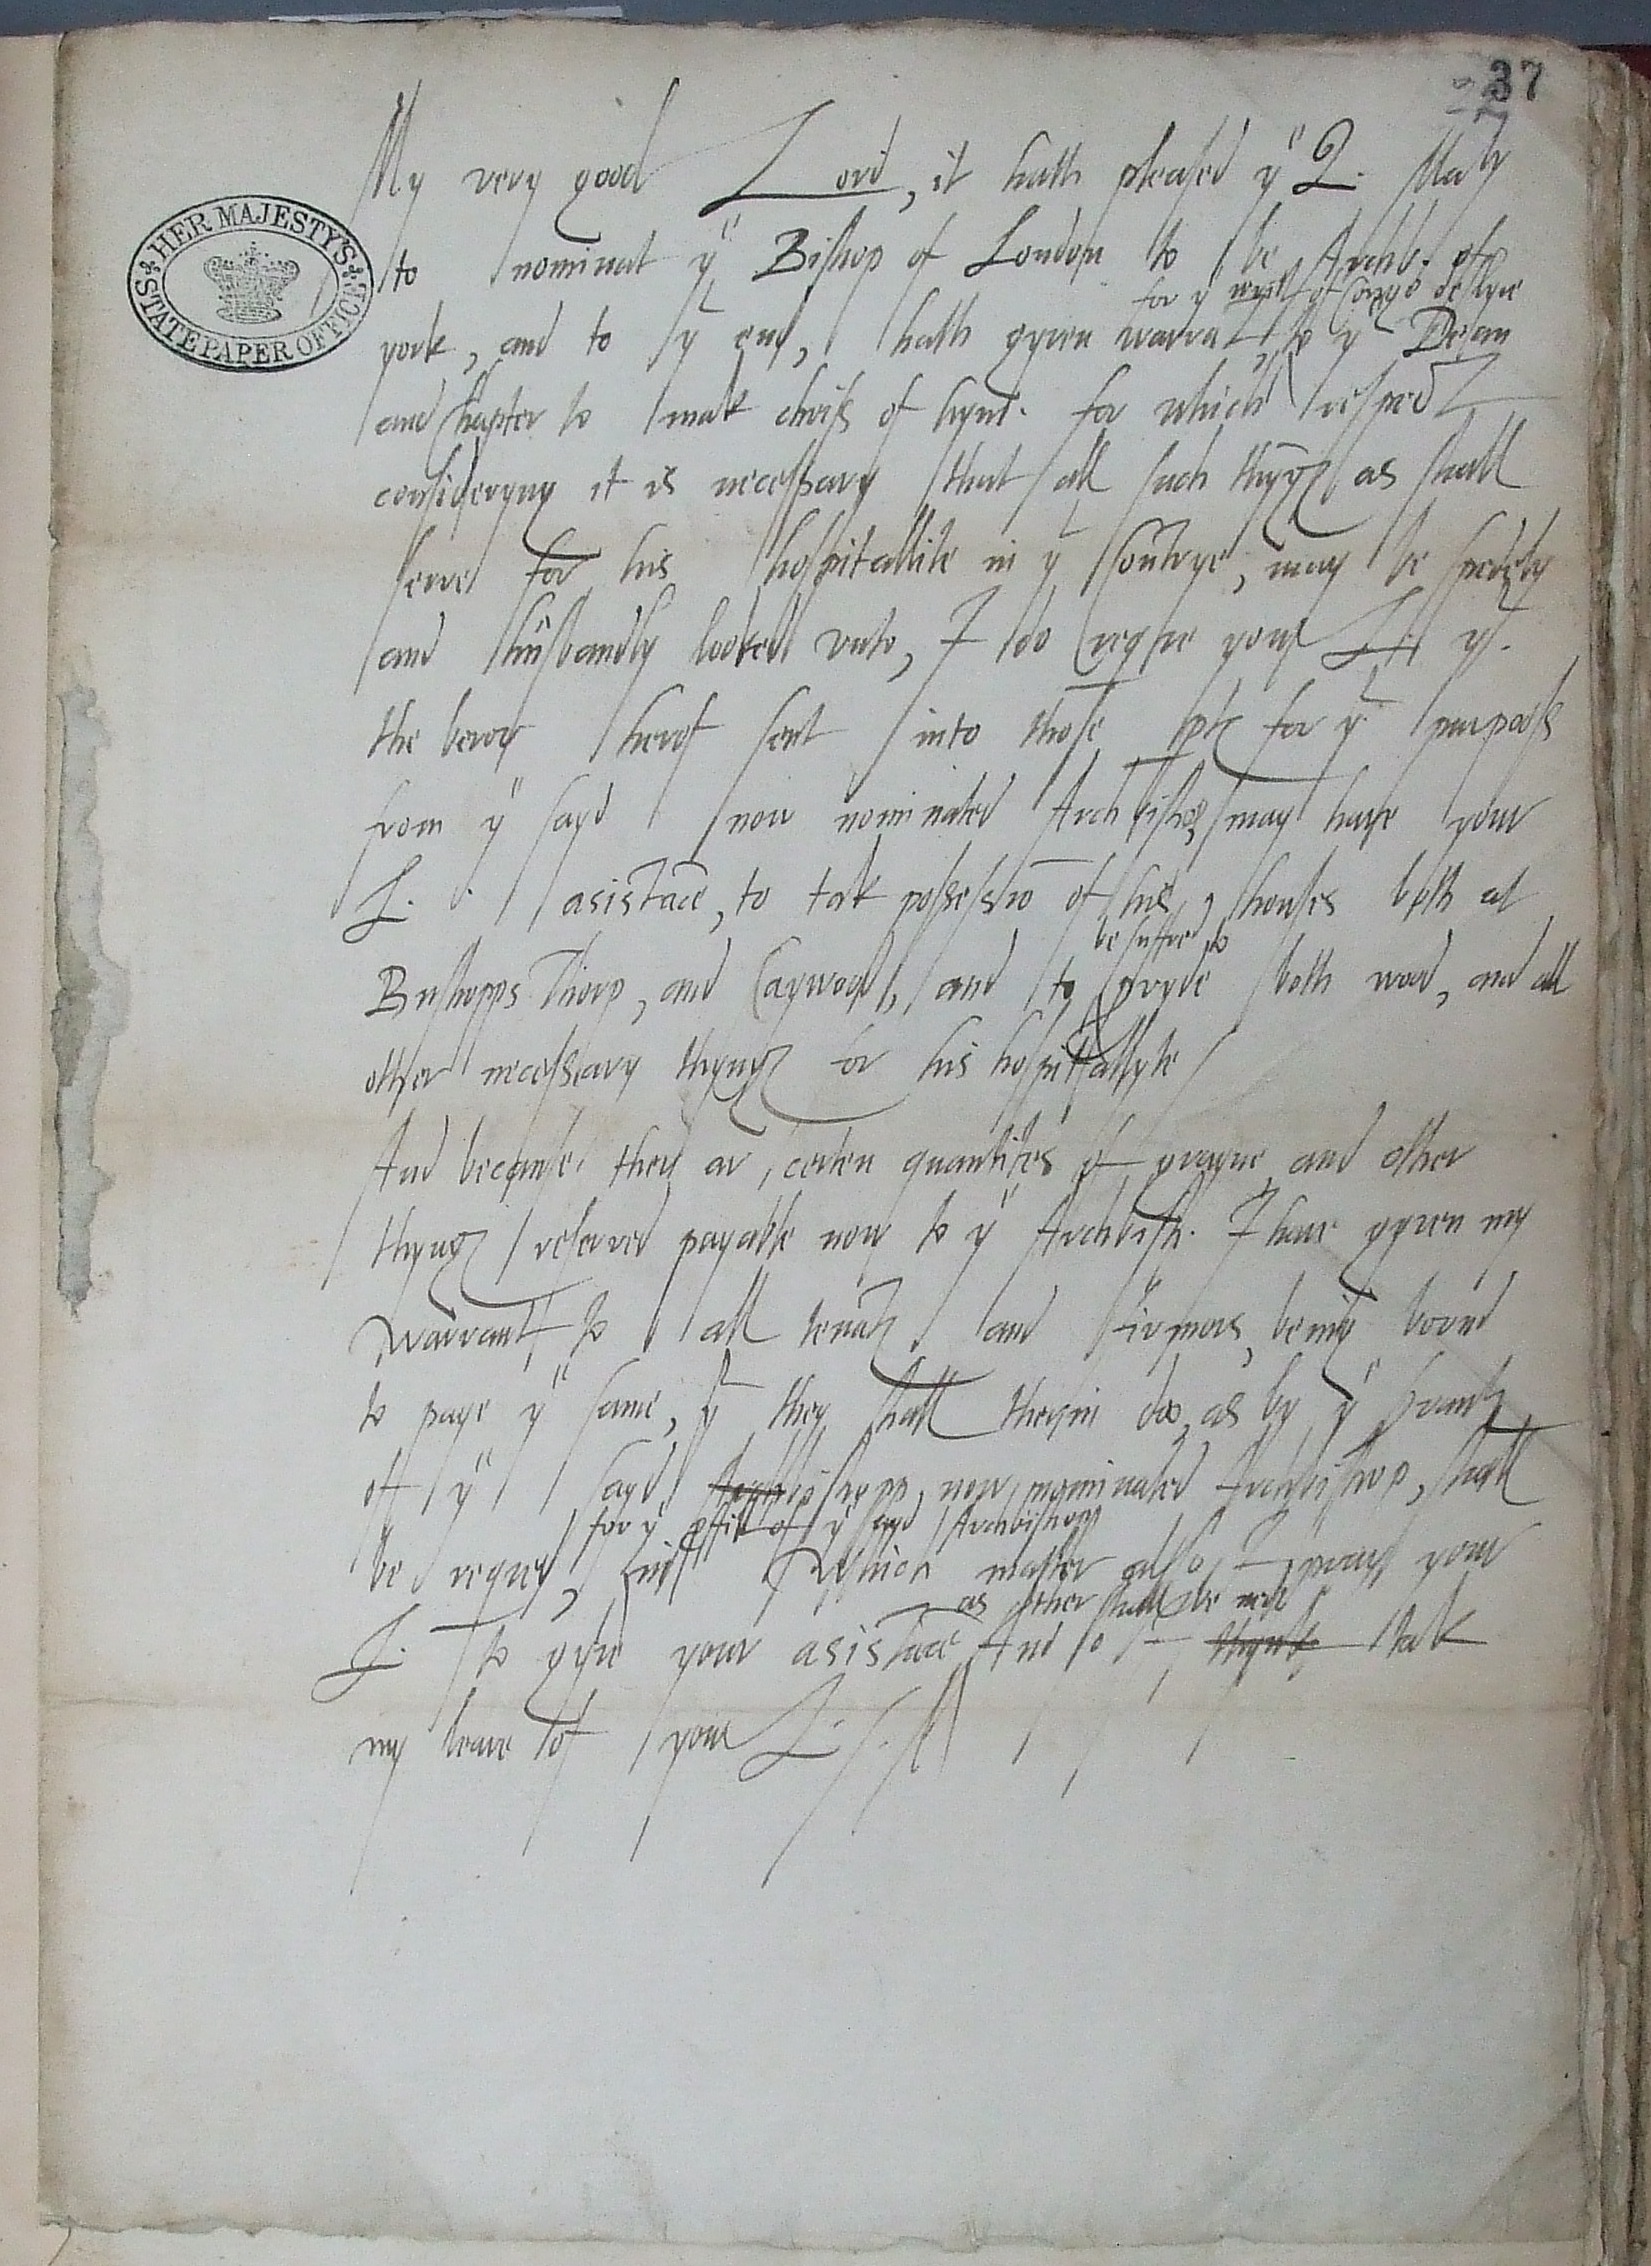 37
HER MAJESTY'S STATE PAPER OFFICE
My very good Lord, it hath pleased yᵉ Q. Maty
to nominat yᵉ Bishop of London to be Archb. of
for yᵉ of Conge deslyre
york, and to yᵗ end, hath gyven warrāt, to yᵉ Dean
and Chapter to mak choiss of hym. for which respect
consideryng it is necessary that all such thyngs as shall
serve for his hospitallite in yᵗ Cōntrye, may be spedely
and husbandly looked unto, I do reqire your L. yᵗ
the beror herof sent into those pts for yᵗ purposs
from yᵉ sayd now nominated Archbishop, may have your
L. asistāce, to tak possessiō of his houses both at
be suffred to
Bushopps Thorp, and Caywood, and to pvyde both wood, and all
other necessary thyngs for his hospitallyte
And because ther ar certen quantites of grayne and other
thyngs reserved payable now to yᵉ Archbish. I have gyven my
warrant to all tenāts and firmors, being bound
to paye yᵉ same, yᵗ they shall therin doo, as by yᵉ svants
of yᵉ sayd Archbishopp, now nominated Archbishop, shall
for yᵉ of yᵉ sayd Archbishop
be reqred, In which matter also I pray your
as other shall be mete
L. to gyve your asistāce And so I thynk tak
my leave of your L.